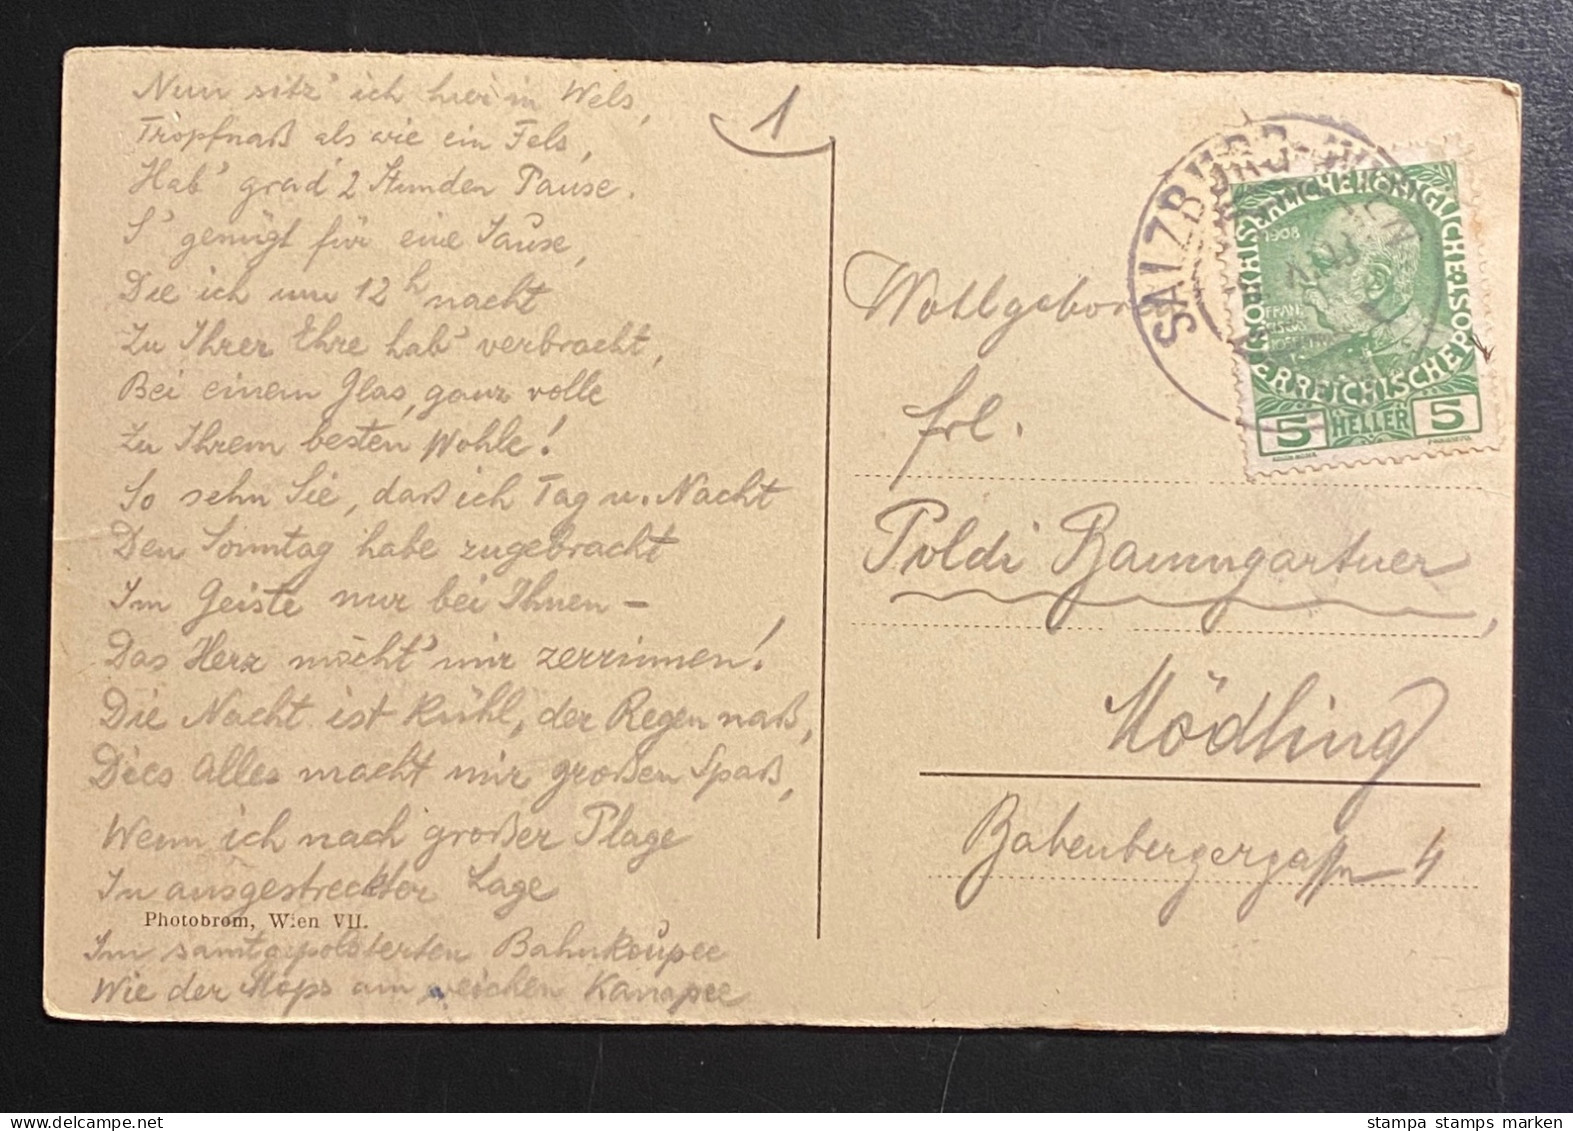 Nun sitz' ich hier in Wels,
Tropfnaß als wie ein Fels,
Hab' grad' 2 Stunden Pause.
S' genügt für eine Jause,
Die ich um 12 h nacht
Zu Ihrer Ehre hab' verbracht,
Bei einem Glas, ganz volle
Zu Ihrem besten Wohle!
So sehn Sie, daß ich Tag u. Nacht
Den Sonntag habe zugebracht
Im Geiste nur bei Ihnen –
Das Herz möcht' mir zerrinnen!
Die Nacht ist kühl, der Regen naß,
Dies Alles macht mir großen Spaß,
Wenn ich nach großer Plage
In ausgestreckter Lage
Photobrom, Wien VII.
Im samtgepolsterten Bahnkoupee
Wie der Mops am weichen Kanapee
1
SALZBURG-
KAISERLICHE KÖNIGLICHE ÖSTERREICHISCHE POST
1908
5 HELLER 5
Wohlgebor
Frl.
Poldi Baumgartner,
Mödling
Babenbergergasse 4
stampa stamps marken